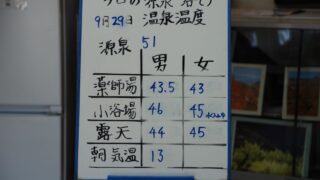 9月29日 温泉温度
源泉 51
男 女
薬師湯 43.5 43
小浴場 46 45
露天 44 45
朝気温 13